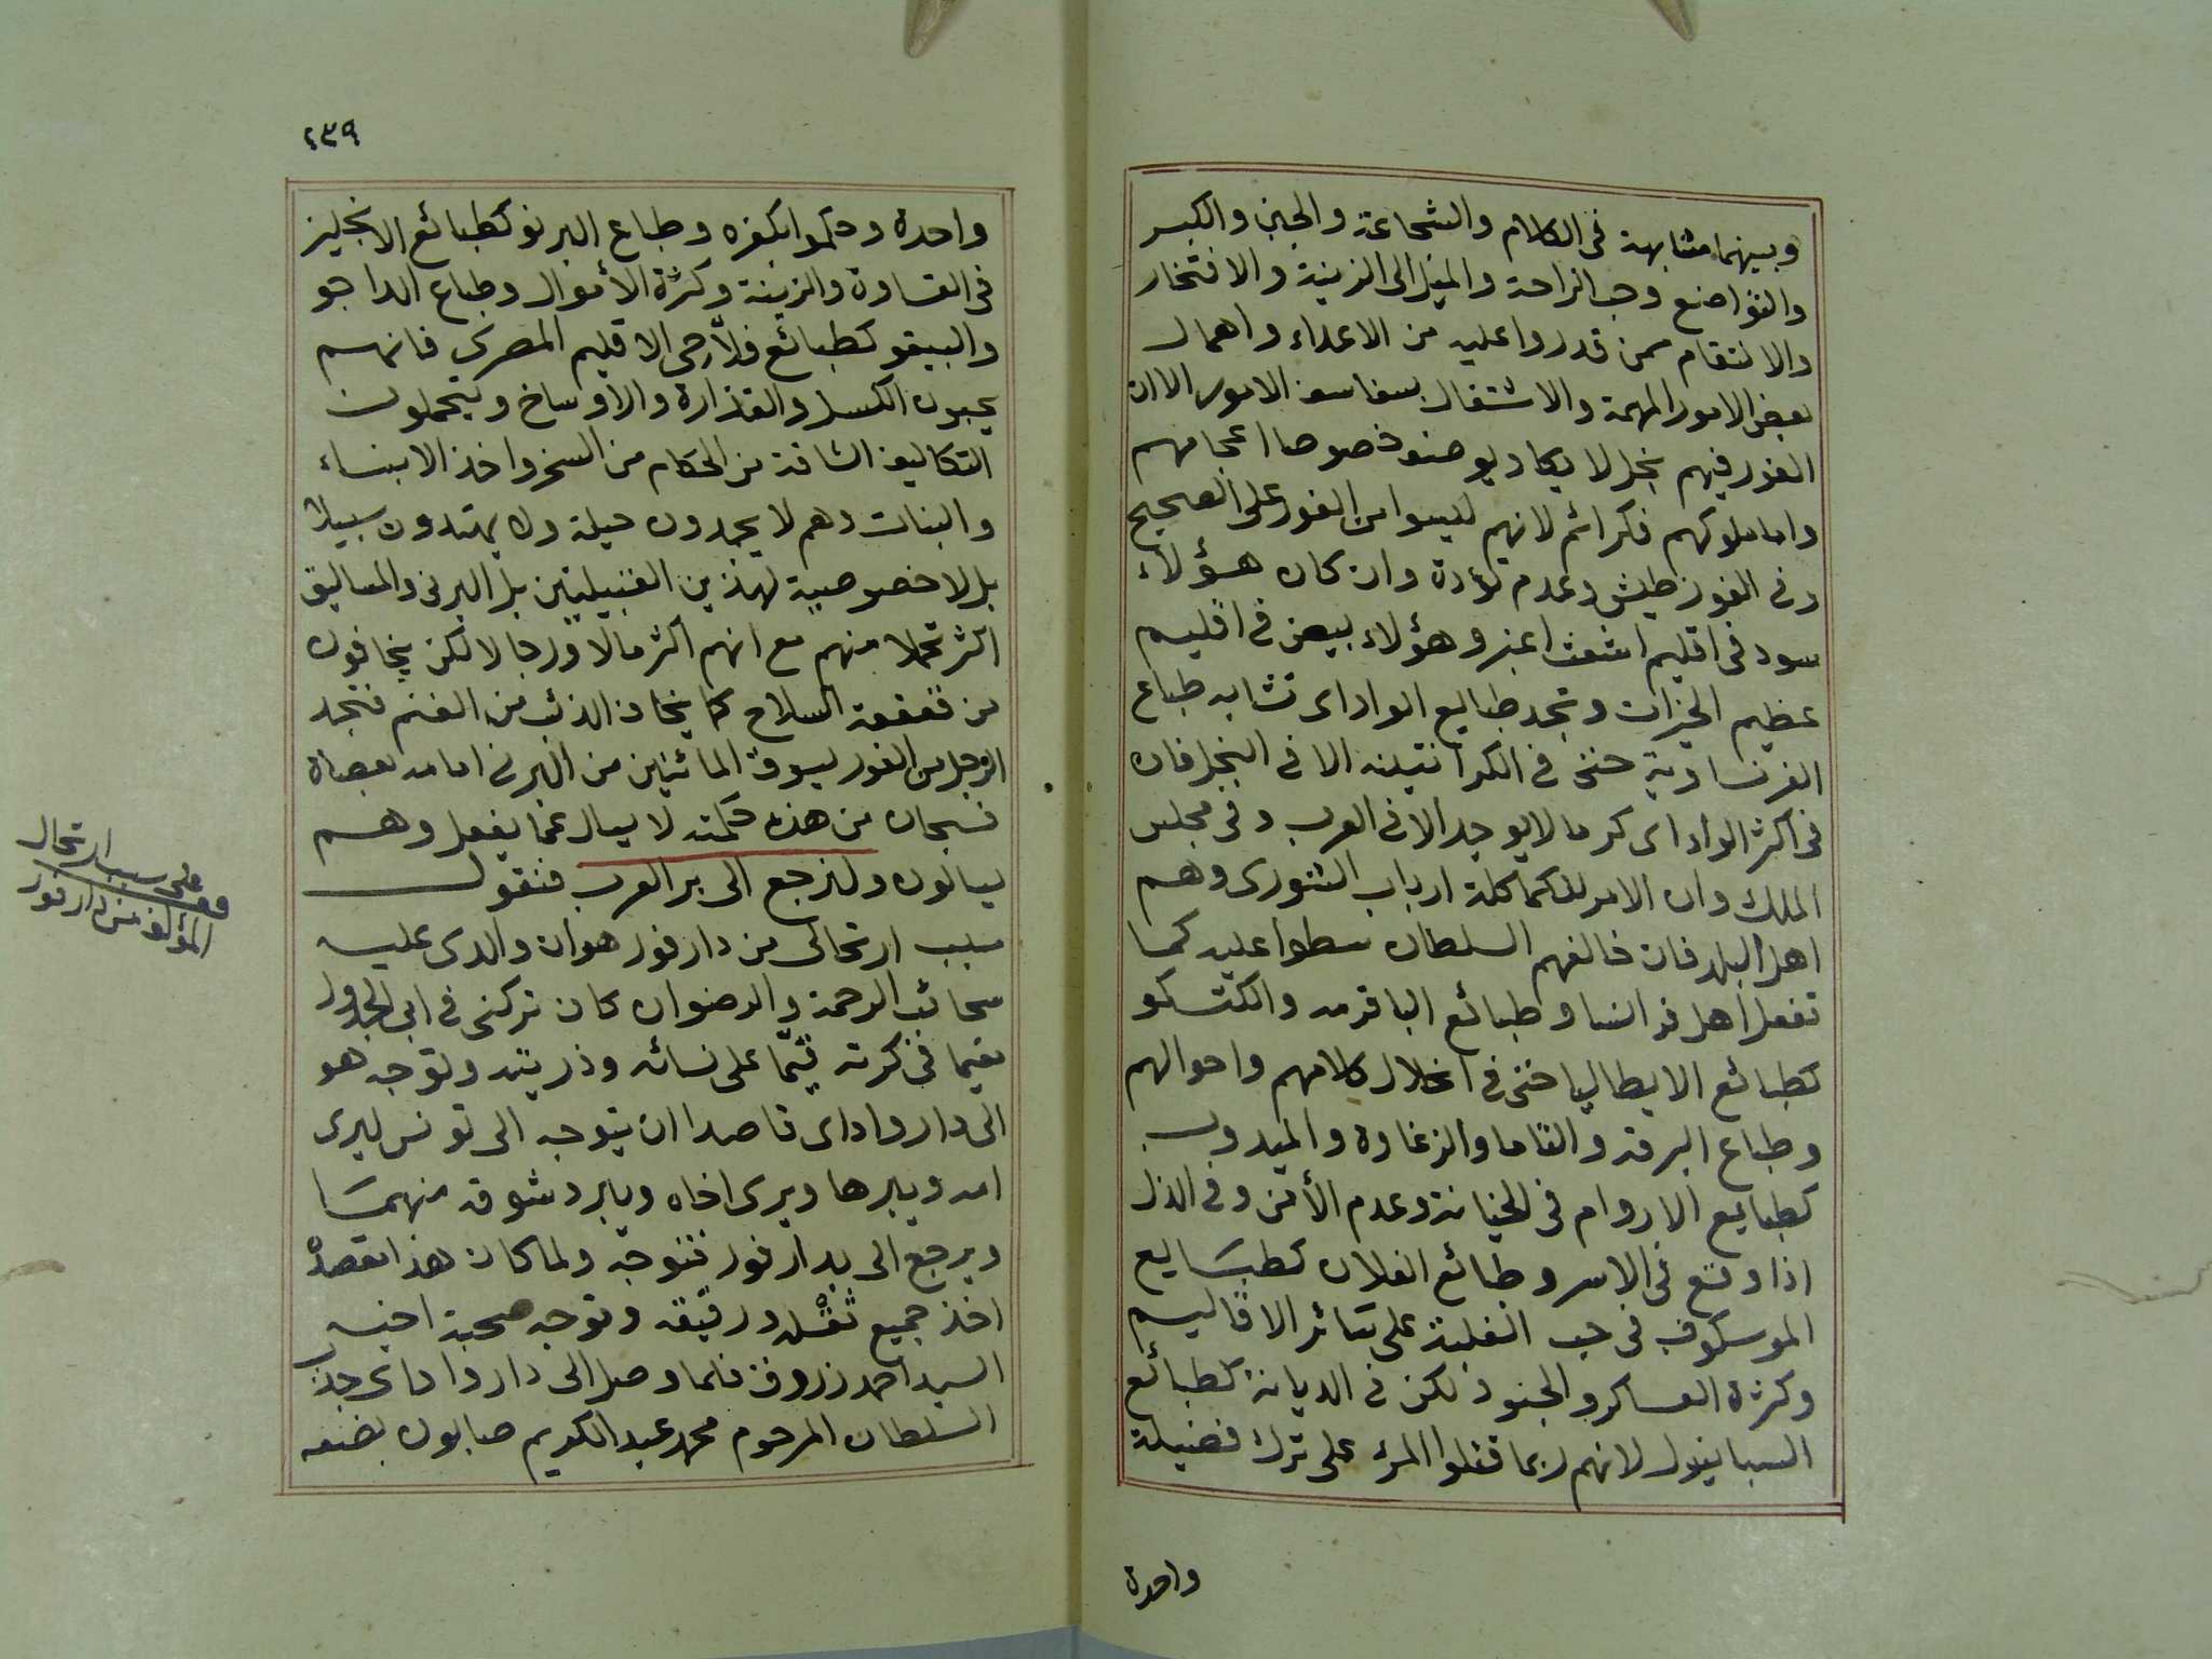 وبينهما مشابهة فى الكلام والشجاعة والجبن والكبر
والتواضع وحب الراحة والميل الى الزينة والافتخار
والانتقام ممن قدروا عليه من الاعداء واهمال
بعض الامور المهمة والاشتغال بسفاسف الامور الا ان
الفور فيهم بخل لا يكاد يوصف خصوصا اعجامهم
واما ملوكهم فكرائم لانهم ليسوا من الفور على الصحيح
وفى الفور طيش وعدم تؤدة وان كان هؤلاء
سود فى اقليم اشعث اغبر وهؤلاء بيض فى اقليم
عظيم الخيرات وتجد طبايع الواداى تشابه طباع
الفرنساوية حتى فى الكرانتينه الا فى البخل فان
فى اكثر الواداى كرما لا يوجد الا فى العرب وفى مجلس
الملك وان الامر للحكماكلة ارباب الشورى وهم
اهل البلد فان خالفهم السلطان سطوا عليه كما
تفعل اهل فرانسا وطبائع الباقرمه والكتكو
كطبائع الايطاليا حتى فى اخلال كلامهم واحوالهم
وطباع البرقد والقاما والزغاوة والميدوب
كطبايع الاروام فى الخيانة وعدم الأمن وفى الذل
اذا وقع فى الاسر وطبائع الفلان كطبايع
الموسكوف فى حب الغلبة على سائر الاقاليم
وكثرة العساكر والجنود لكن فى الديانة كطبائع
السبانيول لانهم ربما قتلوا المرء على ترك فضيلة
واحدة
٢٣٩
واحدة وحكموا بكفره وطباع البرنو كطبائع الانجليز
فى القساوة والزينة وكثرة الأموال وطباع الداجو
والبيقو كطبائع فلاّحى الاقليم المصرى فانهم
يحبون الكسل والقذارة والاوساخ ويتحملون
التكاليف الشاقة من الحكام من السخر واخذ الابناء
والبنات وهم لا يجدون حيلة ولا يهتدون سبيلا
بل لا خصوصية لهذين القبيلتين بل البرتى والمساليق
اكثر تحملا منهم مع انهم اكثر مالا ورجالا لكن يخافون
من قعقعة السلاح كما يخاف الذئب من الغنم فتجد
الرجل من الفور يسوق المائتين من البرتى امامه بعصاة
فسبحان من هذه حكمته لا يسال عما يفعل وهم
يسالون ولنرجع الى بر العرب فنقول
سبب ارتحالى من دارفور هو ان والدى عليه
سحائب الرحمة والرضوان كان تركنى فى ابى الجدول
مقيما فى كرته قيّما على نسائه وذريته وتوجه هو
الى دار واداى قاصدا ان يتوجه الى تونس ليرى
امه ويبرها ويرى اخاه ويبرد شوقه منهما
ويرجع الى بدارفور فتوجه ولما كان هذا مقصده
اخذ جميع ثقله ورقيقه وتوجه صحبة اخيه
السيد احمد زروق فلما وصل الى دار واداى وجد
السلطان المرحوم محمد عبد الكريم صابون بضعه
قف على سبب ارتحال
المؤلف من دارفور